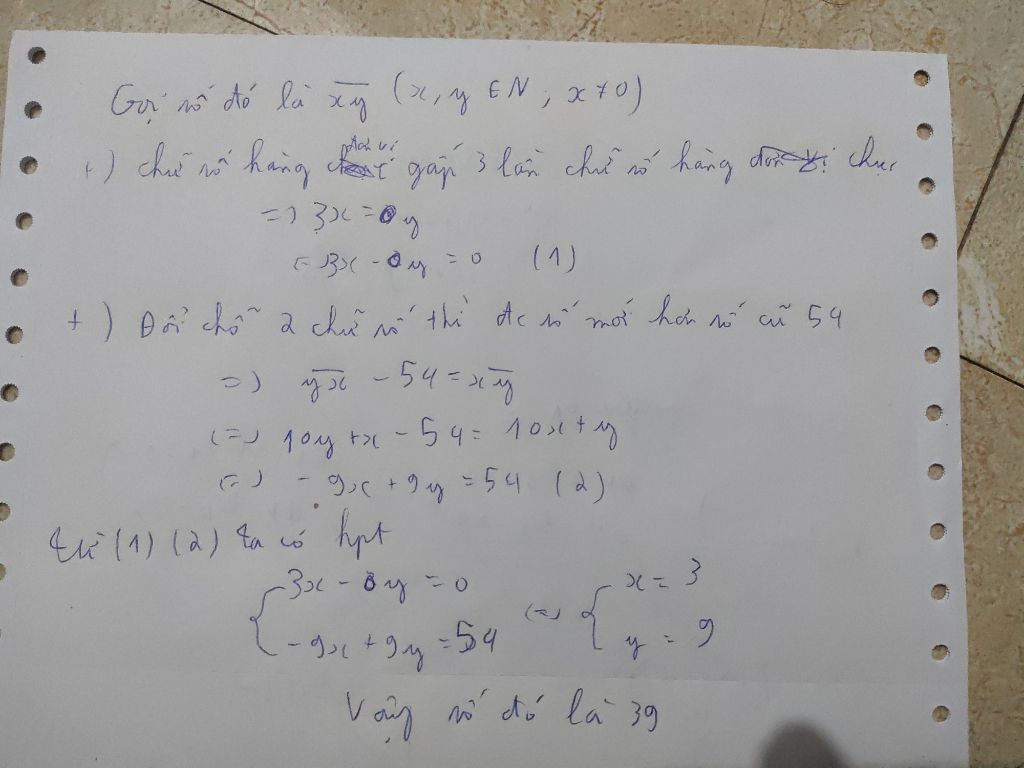 Gọi số đó là x̅y̅ (x, y ∈ N, x ≠ 0)
+) chữ số hàng đơn vị gấp 3 lần chữ số hàng chục
=> 3x = y
<=> 3x - y = 0 (1)
+) Đổi chỗ 2 chữ số thì đc số mới hơn số cũ 54
=> y̅x̅ - 54 = x̅y̅
<=> 10y + x - 54 = 10x + y
<=> - 9x + 9y = 54 (2)
từ (1) (2) ta có hpt
{ 3x - y = 0
- 9x + 9y = 54 <=> { x = 3
y = 9
Vậy số đó là 39